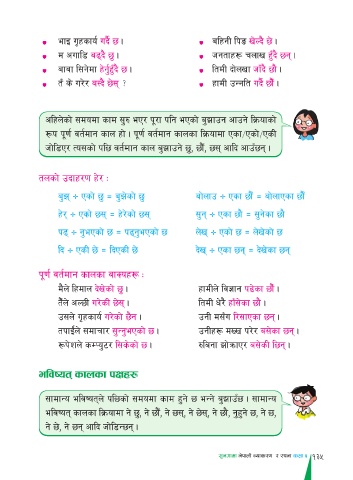 भाइ गृहकार्य गर्दै छ ।
बहिनी पिङ खेल्दै छे ।
म अगाडि बढ्दै छु ।
जनताहरू चलाख हुँदै छन् ।
बाबा सिनेमा हेर्नुहुँदै छ ।
तिमी दोलखा जाँदै छौ ।
तँ के गरेर बस्दै छेस् ?
हामी उन्नति गर्दै छौँ ।
अहिलेको समयमा काम सुरु भएर पूरा पनि भएको बुझाउन आउने क्रियाको
रूप पूर्ण वर्तमान काल हो । पूर्ण वर्तमान कालका क्रियामा एका/एको/एकी
जोडिएर त्यसको पछि वर्तमान काल बुझाउने छु, छौँ, छस् आदि आउँछन् ।
तलको उदाहरण हेर :
बुझ् ÷ एको छु = बुझेको छु
बोलाउ ÷ एका छौँ = बोलाएका छौँ
हेर् ÷ एको छस् = हेरेको छस्
सुन् ÷ एका छौ = सुनेका छौ
पढ् ÷ नुभएको छ = पढ्नुभएको छ
लेख् ÷ एको छ = लेखेको छ
दि ÷ एकी छे = दिएकी छे
देख् ÷ एका छन् = देखेका छन्
पूर्ण वर्तमान कालका वाक्यहरू :
मैले हिमाल देखेको छु ।
हामीले विज्ञान पढेका छौँ ।
तैँले अल्छी गरेकी छेस् ।
तिमी धेरै हाँसेका छौ ।
उसले गृहकार्य गरेको छैन ।
उनी मसँग रिसाएका छन् ।
तपाईंले समाचार सुन्नुभएको छ ।
उनीहरू मख्ख परेर बसेका छन् ।
रूपेशले कम्प्युटर सिकेको छ ।
रुबिना झोक्राएर बसेकी छिन् ।
भविष्यत् कालका पक्षहरू
सामान्य भविष्यत्‌ले पछिको समयमा काम हुने छ भन्ने बुझाउँछ । सामान्य
भविष्यत् कालका क्रियामा ने छु, ने छौँ, ने छस्, ने छेस्, ने छौ, नुहुने छ, ने छ,
ने छे, ने छन् आदि जोडिन्छन् ।
नेपाली व्याकरण र रचना कक्षा ५ १३५